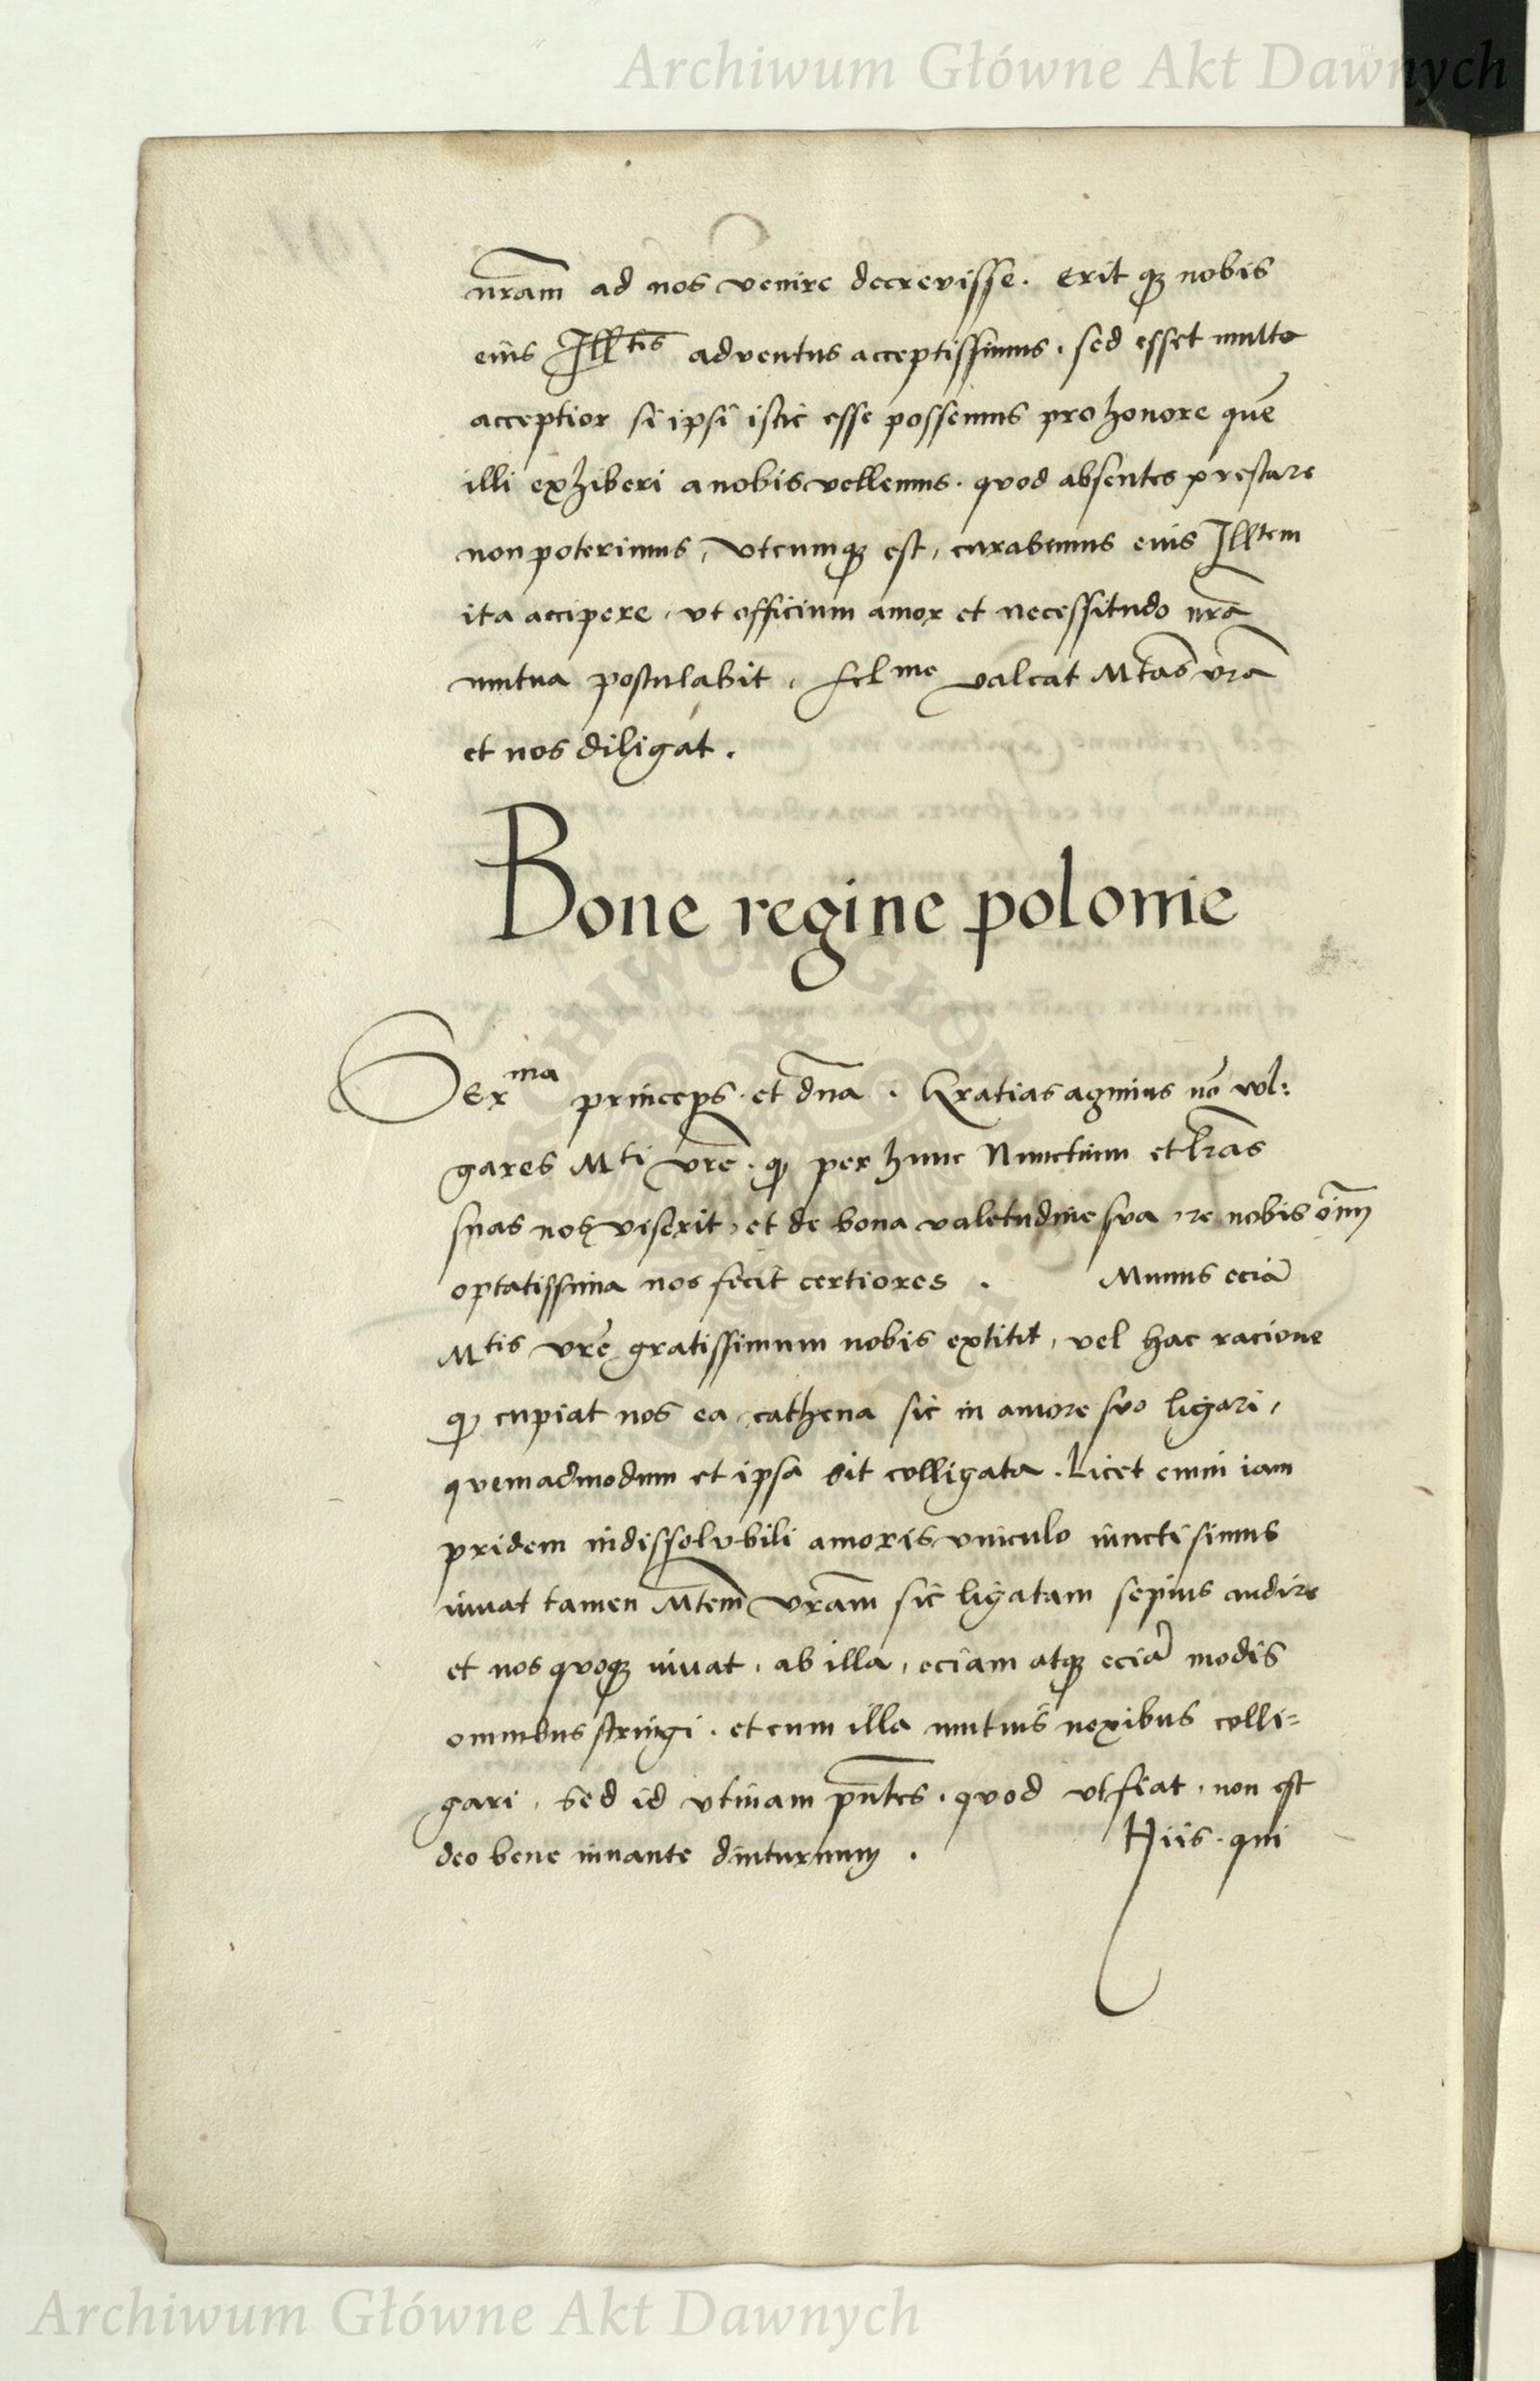 Archiwum Główne Akt Dawnych
nr̃am ad nos venire decrevisse. Erit q3 nobis
eius Ill^tis adventus acceptissimus. sed esset multo
acceptior si ipsi istic esse possemus pro honore quẽ
illi exhiberi a nobis vellemus. quod absentes prestare
non poterimus, utcumq3 est, curabimus eius Ill^tem
ita accipere, ut officium amor et necessitudo nr̃a
mutua postulabit, fel^me valeat M̃tas vr̃a
et nos diligat.
Bone regine polonie
Ser^ma princeps et dña. Gratias agimus nõ vol:
gares M^ti vr̃e. q, per hunc Nunctium et lr̃as
suas nos viserit, et de bona valetudine sua, re nobis oĩm
optatissima nos fecit certiores. Munus eciã
M^tis vr̃e gratissimum nobis extitit, vel hac racione
q, cupiat nos ea cathena sic in amore suo ligari,
quemadmodum et ipsa sit colligata. Licet enim iam
pridem indissolubili amoris vinculo iuncti simus
iuvat tamen M̃tem vr̃am sic ligatam sepius audire
et nos quoq3 iuvat, ab illa, eciam atq3 eciã modis
omnibus stringi. et cum illa mutuis nexibus colli=
gari, sed id utinam pñtes. quod ut fiat, non est
deo bene iuvante diuturnum. Hiis. qui
Archiwum Główne Akt Dawnych